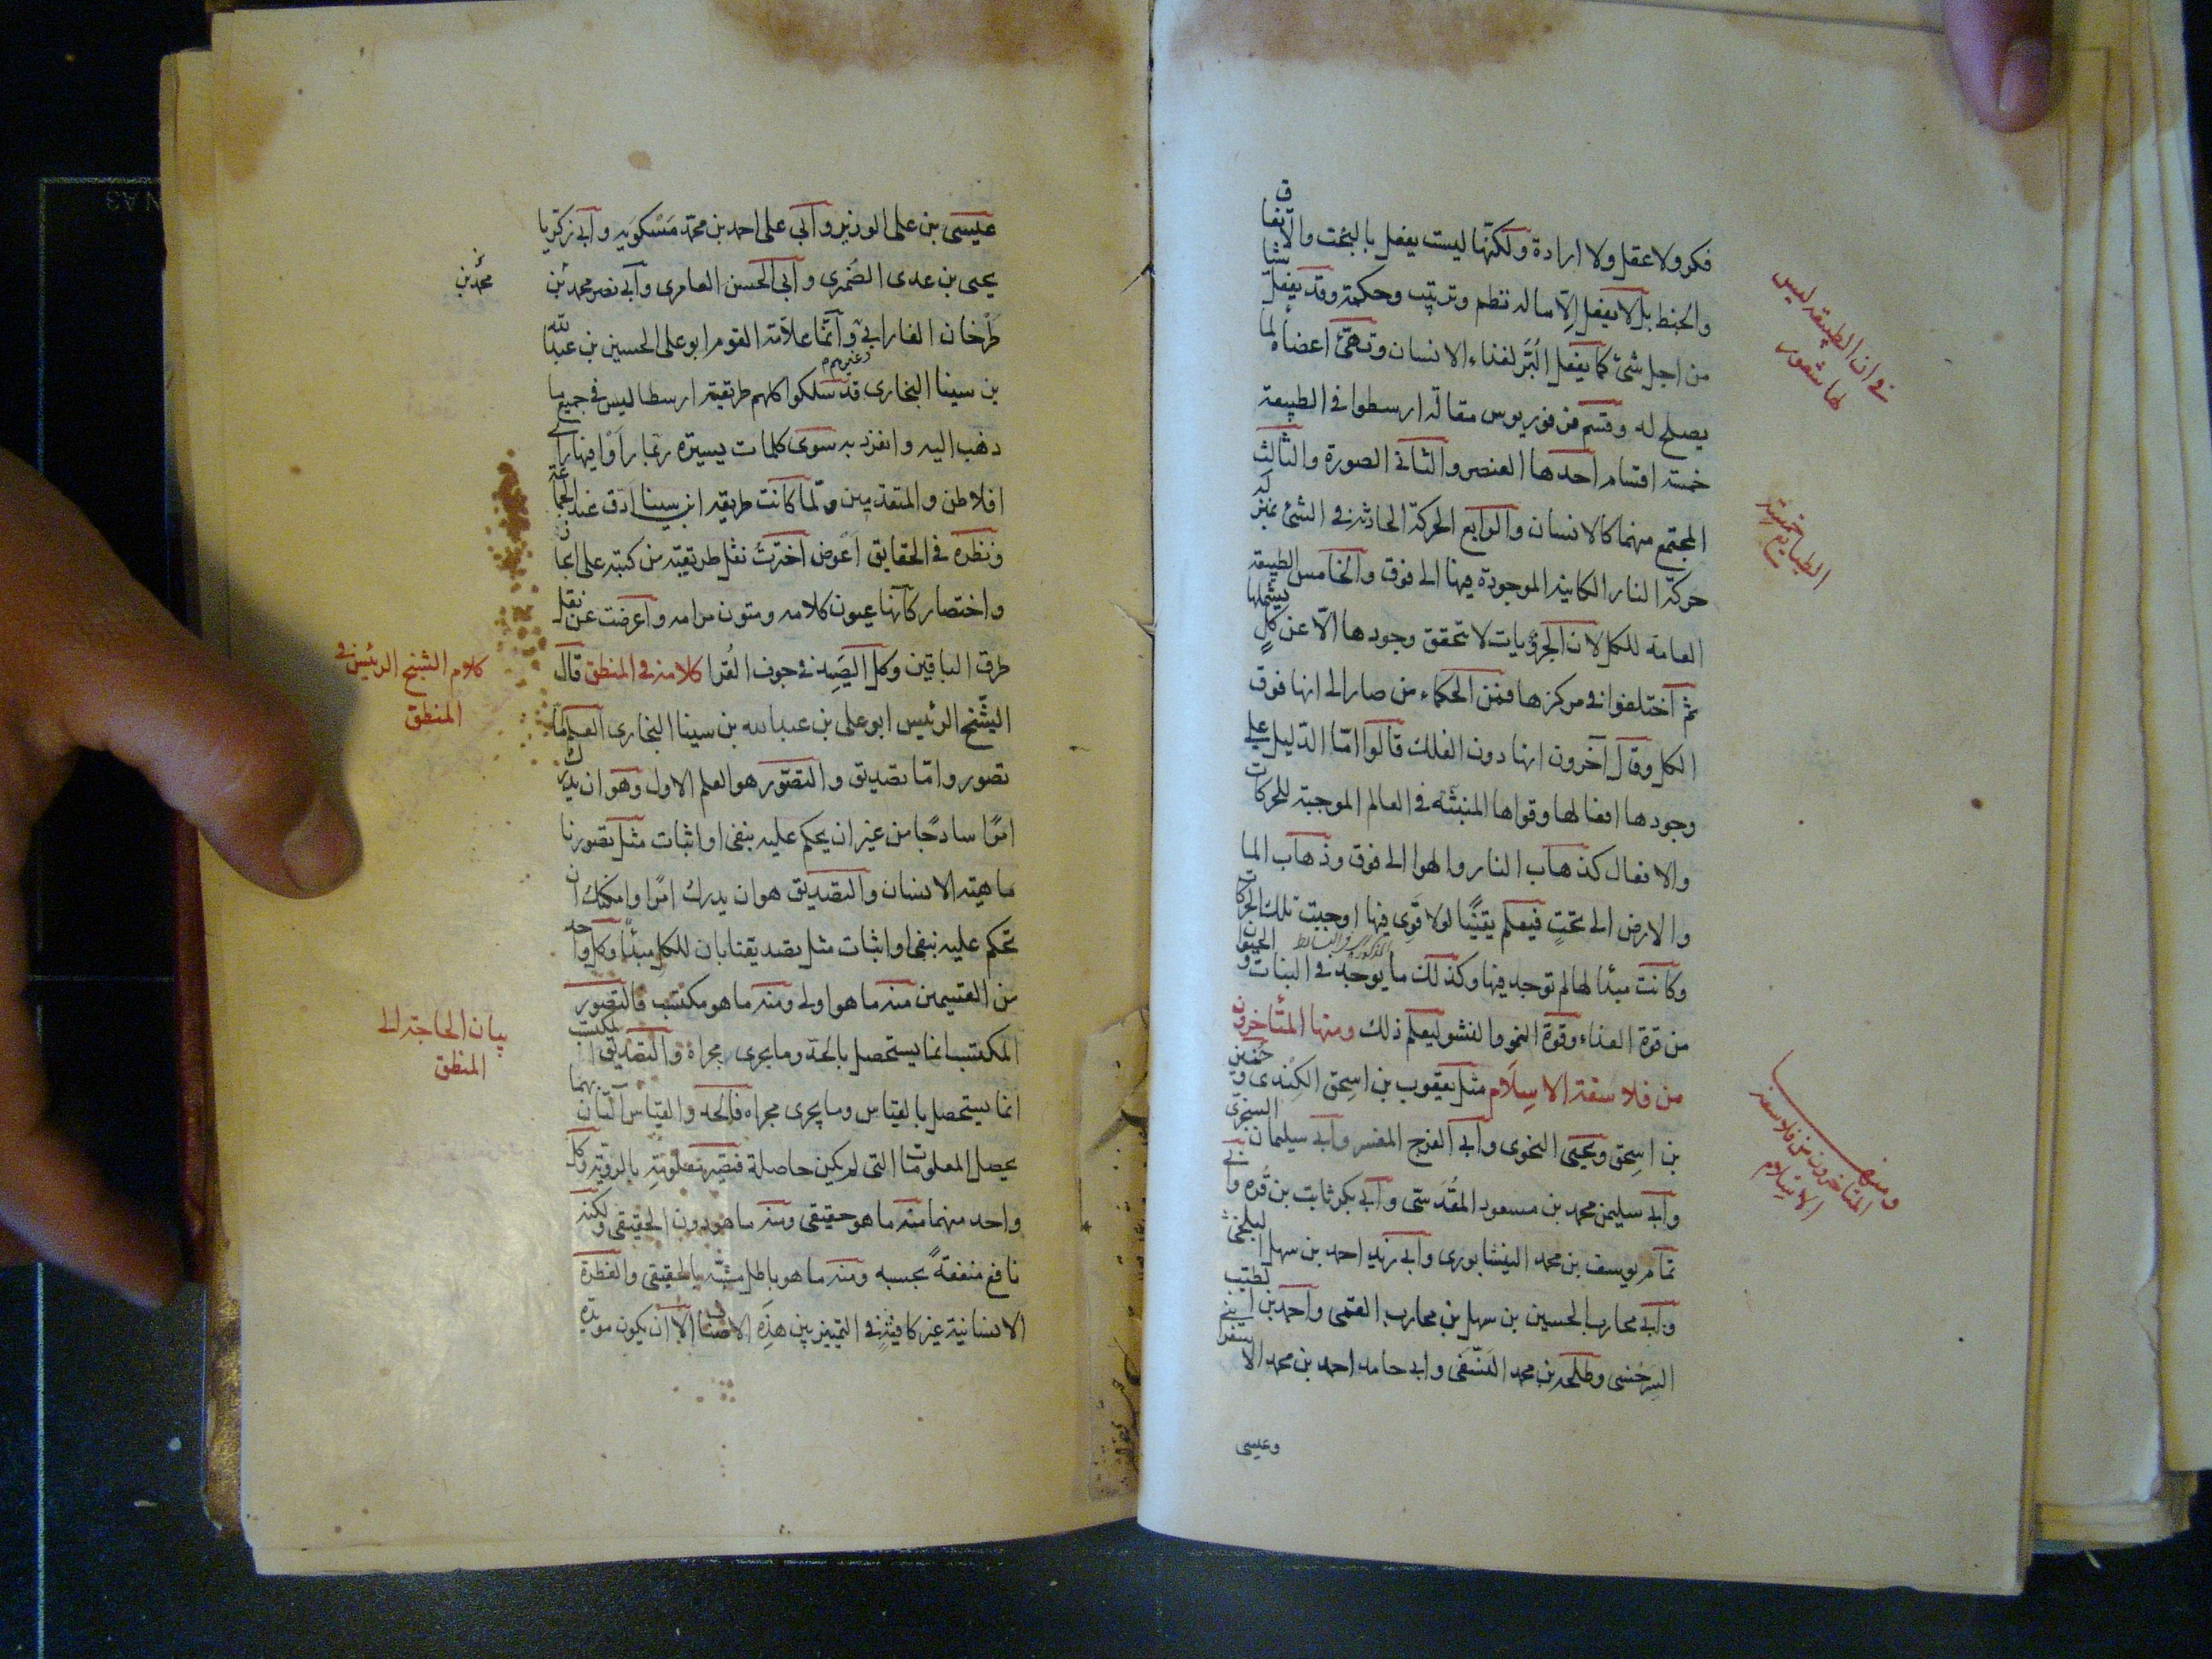 فكر ولا عقل ولا ارادة ولكنّها ليست يفعل بالبخت والاتّفاق
والخبط بل لا يفعل الّا ما له نظم وترتيب وحكمة وقد يفعل شيئا
من اجل شئ كما يفعل البُرّ لغذاء الانسان وتهيّئ اعضأه لما
يصلح له وقسّم فرفوريوس مقالة ارسطوا في الطبيعة
خمسة اقسام احدها العنصر والثانى الصورة والثالث
المجتمع منهما كالانسان والرابع الحركة الحادثة في الشئ بمنزلة
حركة النار الكاينة الموجودة فيها الى فوق والخامس الطبيعة
العامة للكل لان الجزؤيات لا تحقق وجودها الّا عن كلٍ يشملها
ثم اختلفوا في مركزها فمن الحكماء من صار الى انها فوق
الكل وقال آخرون انها دون الفلك قالوا امّا الدّليل على
وجودها افعالها وقواها المنبثة في العالم الموجبة للحركات
والافعال كذهاب النار والهوا الى فوق وذهاب الما
والارض الى تحتٍ فيعلم يقينًا لولا قوى فيها اوجبت تلك الحركات
وكانت مبدأ لها لم توجد فيها وكذلك ما يوجد في النبات والحيوان
من قوة الغذاء وقوة النمو والنشو ليعلم ذلك ومنها المتأخرون
من فلاسفة الاسلام مثل يعقوب بن اسحق الكِندى وحُنَين
بن اسحق ويحيى النحوى وابى الفرج المفسر وابى سليمان السنجرى
وابى سليمن محمد بن مسعود المقدسى وابى بكر ثابت بن قُره وابى
تمام يوسف بن محمد النيشابورى وابى زيد احمد بن سهل البلخى
وابى محارب الحسين بن سهل بن محارب القمى واحمد بن الطيب
السرخسى وطلحة بن محمد النسفى وابى حامد احمد بن محمد الاسفرا
وعيسى
في ان الطبيعة ليس
لها شعور
الطبايع خمسة
ومنها
المتاخرون من فلاسفة
الاسلام
عيسى بن على الوزير وابى على احمد بن محمد مَسْكويه وابى زكريا
يحيى بن عدى الضمرى وابى الحسن العامرى وابى نصر محمد بن
محمد بن
طرخان الفارابى وغيرهم وانّما علامة القوم ابو على الحسين بن عبدالله
بن سينا البخارى قد سلكوا كلهم طريقة ارسطاليس في جميع ما
ذهب اليه وانفرد به سوى كلمات يسيرة ربما رأوا فيها رأى
افلاطن والمتقدمين ولما كانت طريقة ابن سينا ادق عند الجماعة
ونظره في الحقايق اغوض اخترت نقل طريقته من كتبه على ايجاز
واختصار كأنها عيون كلامه ومتون مرامه واعرضت عن نقل
طرق الباقين وكل الصيد في جوف الفرا كلامه في المنطق قال
الشيخ الرئيس ابو على بن عبدالله بن سينا البخارى العلم امّا
تصور وامّا تصديق والتصّور هو العلم الاول وهو ان يدرك
امرًا ساذجًا من غير ان يحكم عليه بنفى او اثبات مثل تصورنا
ماهية الانسان والتصديق هو ان يدرك امرًا وامكنك ان
تحكم عليه بنفى او اثبات مثل تصديقنا بان للكل مبدأ وكل واحد
من القسمين منه ما هو اولى ومنه ما هو مكتسب فالتصور
المكتسب انما يستحصل بالحدّ وما يجرى مجراه والتصديق المكتسب
انما يستحصل بالقياس وما يجرى مجراه فالحد والقياس آلتان بهما
يحصل المعلومات التى لم يكن حاصلة فتصير معلومةٍ بالروية وكل
واحد منهما منه ما هو حقيقى ومنه ما هو دون الحقيقى ولكنه
نافع منفعةً بحسبه ومنه ما هو باطل مشبّه بالحقيقى والفطرة
الانسانية غير كافيةٍ في التمييز بين هذه الاصناف الا ان يكون مويدة
كلام الشيخ الرئيس في
المنطق
بيان الحاجة الى
المنطق